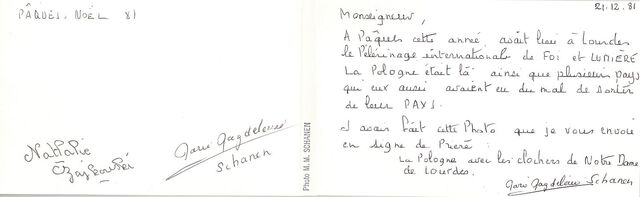 PÂQUES. NOËL 81
Nathalie
Marie Magdeleine
Schanen
Photo M. M. SCHANEN
21.12.81
Monseigneur,
A Pâques cette année, avait lieu à Lourdes
le Pélerinage international de Foi et LUMIÈRE
La Pologne était là ainsi que plusieurs pays
qui eux aussi avaient eu du mal de sortir
de leur PAYS.
J'avais fait cette Photo que je vous envoie
en signe de Prière :
La Pologne avec les clochers de Notre Dame
de Lourdes.
Marie Magdeleine Schanen